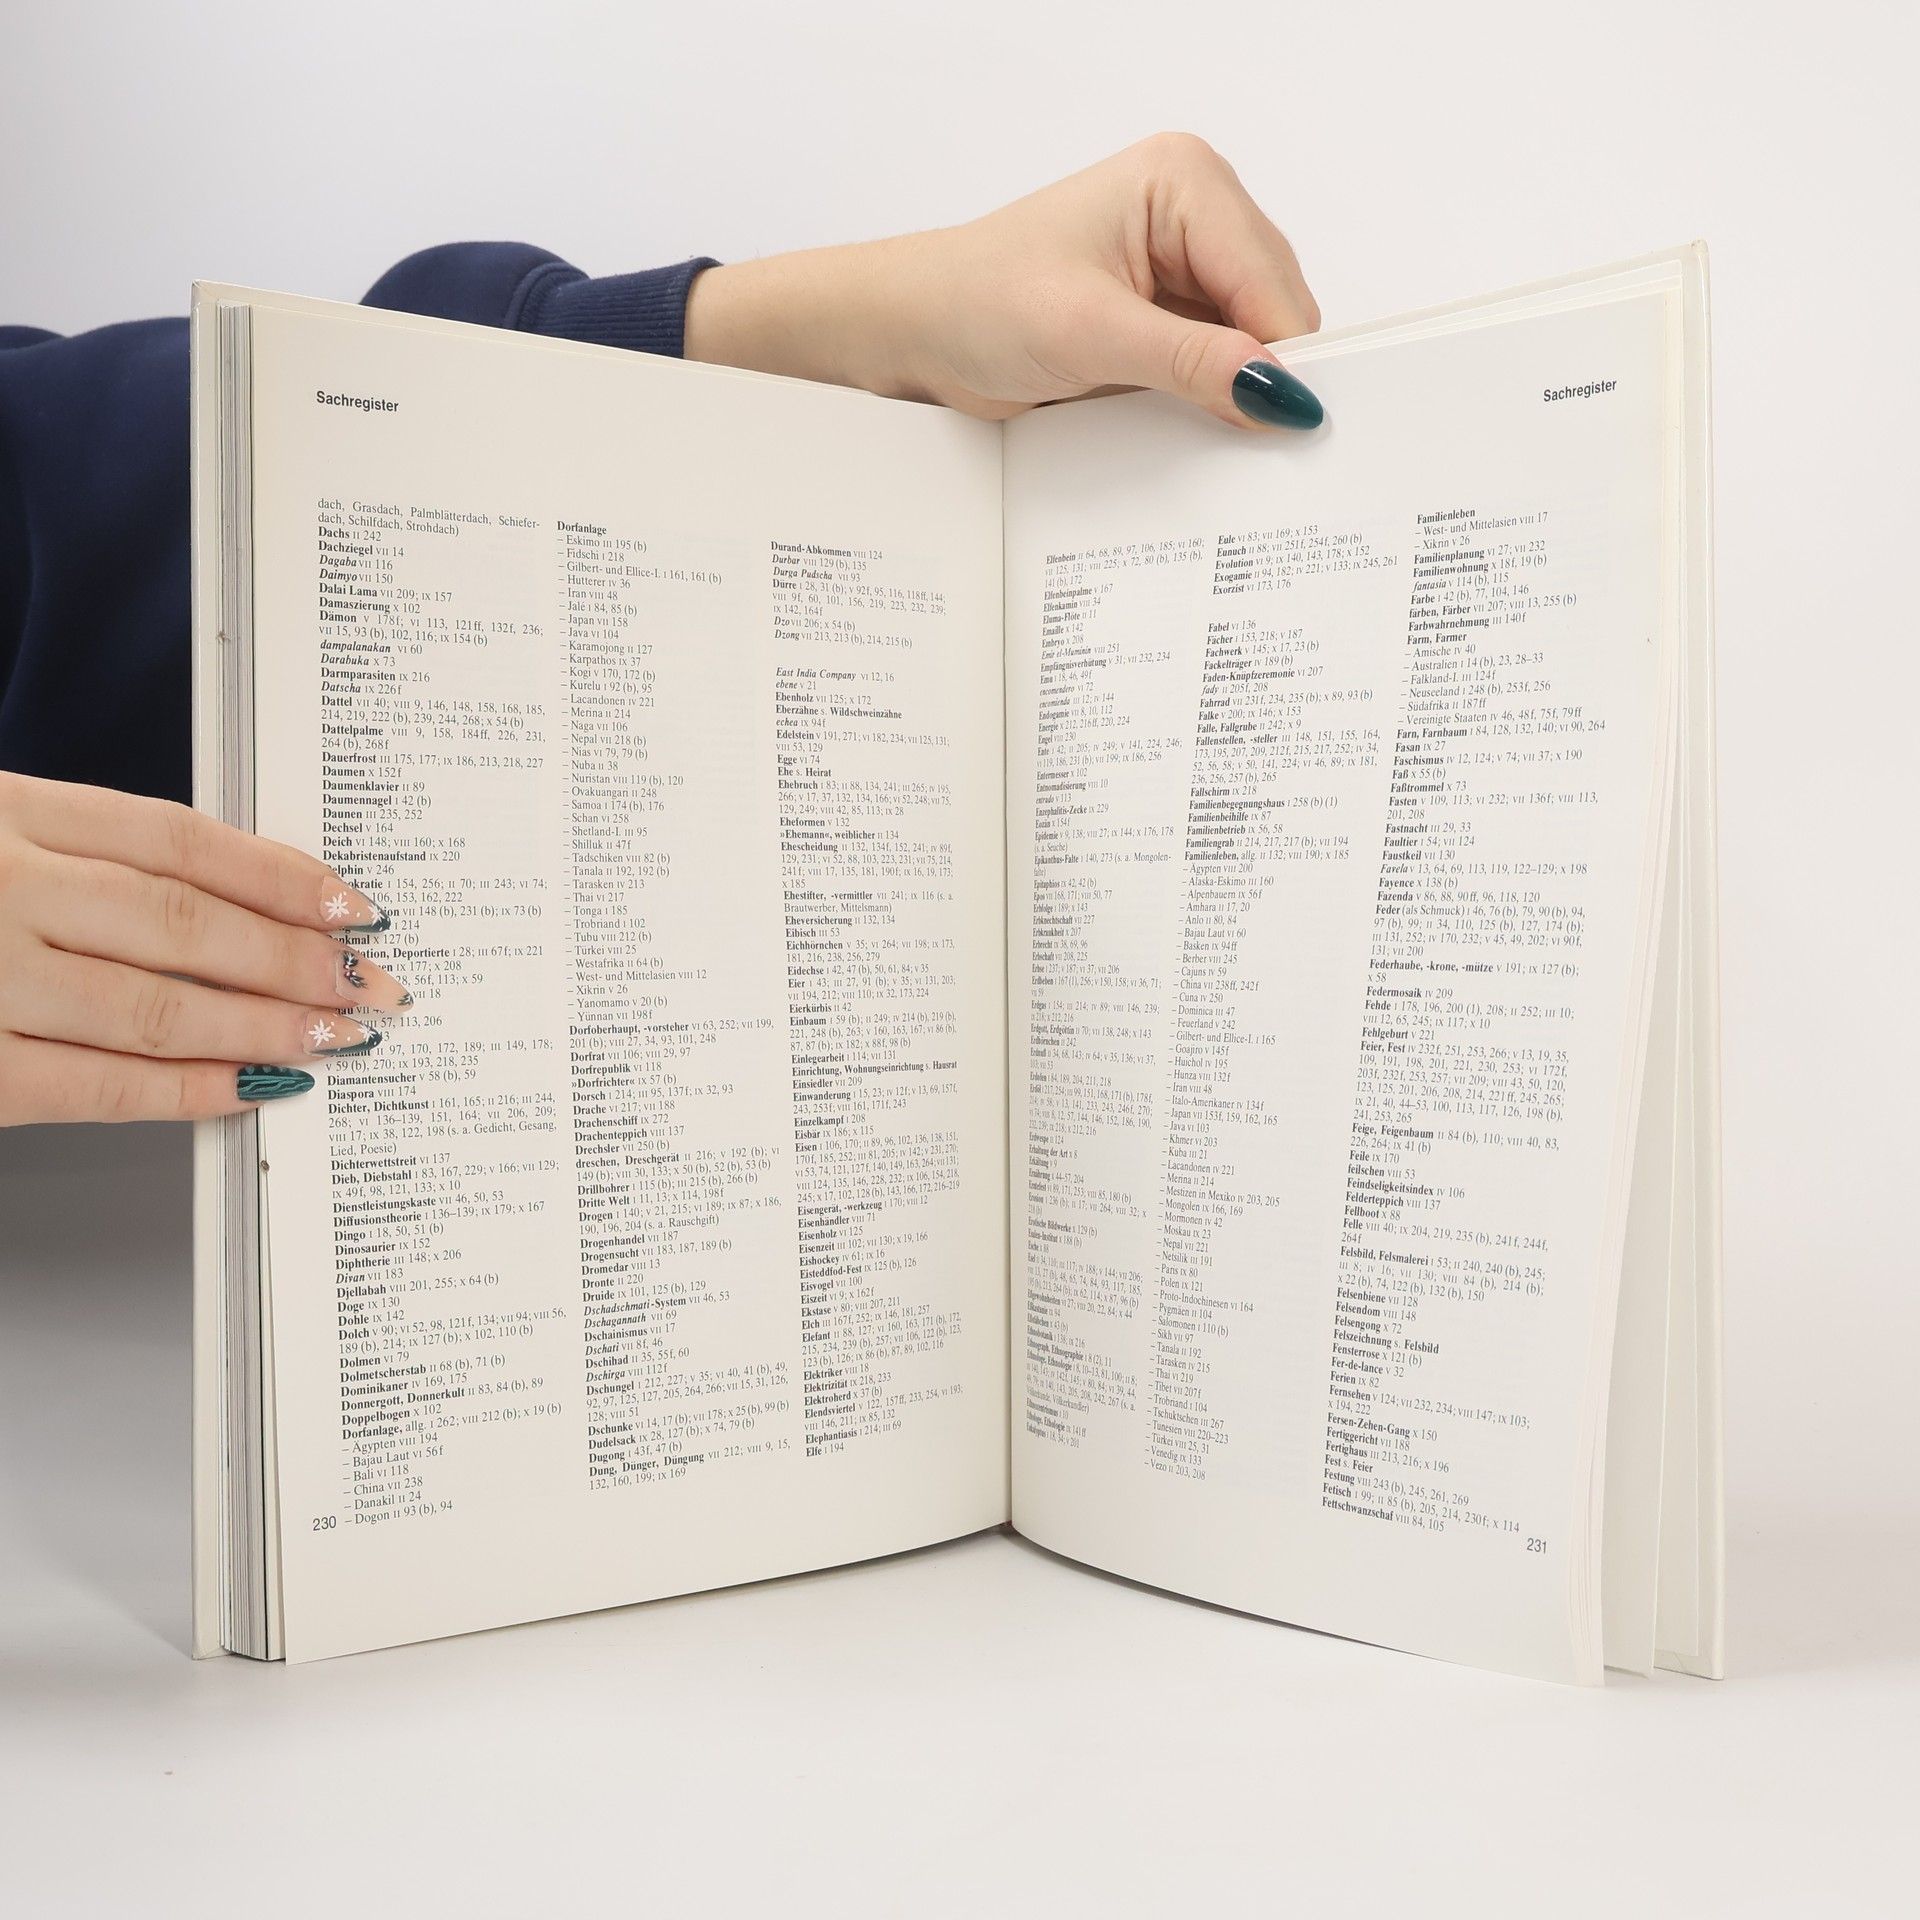 Sachregister
dach, Grasdach, Palmblätterdach, Schiefer-
dach, Schilfdach, Strohdach)
Dachs II 242
Dachziegel VII 14
Dagaba VII 116
Daimyo VII 150
Dalai Lama VII 209; IX 157
Damaszierung X 102
Dämon V 178f; VI 113, 121ff, 132f, 236;
VII 15, 93 (b), 102, 116; IX 154 (b)
dampalanakan VI 60
Darabuka X 73
Darmparasiten IX 216
Datscha IX 226f
Dattel VII 40; VIII 9, 146, 148, 158, 168, 185,
214, 219, 222 (b), 239, 244, 268; X 54 (b)
Dattelpalme VIII 9, 158, 184ff, 226, 231,
264 (b), 268f
Dauerfrost III 175, 177; IX 186, 213, 218, 227
Daumen X 152f
Daumenklavier II 89
Daumennagel I 42 (b)
Daunen III 235, 252
Dechsel V 164
Deich VI 148; VIII 160; X 168
Dekabristenaufstand IX 220
elphin V 246
okratie I 154, 256; II 70; III 243; VI 74;
106, 153, 162, 222
on VII 148 (b), 231 (b); IX 73 (b)
I 214
enkmal X 127 (b)
ation, Deportierte I 28; III 67f; IX 221
en IX 177; X 208
28, 56f, 113; X 59
VII 18
57, 113, 206
II 97, 170, 172, 189; III 149, 178;
V 59 (b), 270; IX 193, 218, 235
Diamantensucher V 58 (b), 59
Diaspora VIII 174
Dichter, Dichtkunst I 161, 165; II 216; III 244,
268; VI 136–139, 151, 164; VII 206, 209;
VIII 17; IX 38, 122, 198 (s. a. Gedicht, Gesang,
Lied, Poesie)
Dichterwettstreit VI 137
Dieb, Diebstahl I 83, 167, 229; V 166; VII 129;
IX 49f, 98, 121, 133; X 10
Dienstleistungskaste VII 46, 50, 53
Diffusionstheorie I 136–139; IX 179; X 167
Dingo I 18, 50, 51 (b)
Dinosaurier IX 152
Diphtherie III 148; X 206
Divan VII 183
Djellabah VIII 201, 255; X 64 (b)
Doge IX 130
Dohle IX 142
Dolch V 90; VI 52, 98, 121f, 134; VII 94; VIII 56,
189 (b), 214; IX 127 (b); X 102, 110 (b)
Dolmen VI 79
Dolmetscherstab II 68 (b), 71 (b)
Dominikaner IV 169, 175
Donnergott, Donnerkult II 83, 84 (b), 89
Doppelbogen X 102
Dorfanlage, allg. I 262; VIII 212 (b); X 19 (b)
– Ägypten VIII 194
– Bajau Laut VI 56f
– Bali VI 118
– China VII 238
– Danakil II 24
– Dogon II 93 (b), 94
230
Dorfanlage
– Eskimo III 195 (b)
– Fidschi I 218
– Gilbert- und Ellice-I. I 161, 161 (b)
– Hutterer IV 36
– Iran VIII 48
– Jalé I 84, 85 (b)
– Japan VII 158
– Java VI 104
– Karamojong II 127
– Karpathos IX 37
– Kogi V 170, 172 (b)
– Kurelu I 92 (b), 95
– Lacandonen IV 221
– Merina II 214
– Naga VII 106
– Nepal VII 218 (b)
– Nias VI 79, 79 (b)
– Nuba II 38
– Nuristan VIII 119 (b), 120
– Ovakuangari II 248
– Samoa I 174 (b), 176
– Schan VI 258
– Shetland-I. III 95
– Shilluk II 47f
– Tadschiken VIII 82 (b)
– Tanala II 192, 192 (b)
– Tarasken IV 213
– Thai VI 217
– Tonga I 185
– Trobriand I 102
– Tubu VIII 212 (b)
– Türkei VIII 25
– Westafrika II 64 (b)
– West- und Mittelasien VIII 12
– Xikrin V 26
– Yanomamo V 20 (b)
– Yünnan VII 198f
Dorfoberhaupt, -vorsteher VI 63, 252; VII 199,
201 (b); VIII 27, 34, 93, 101, 248
Dorfrat VII 106; VIII 29, 97
Dorfrepublik VI 118
»Dorfrichter« IX 57 (b)
Dorsch I 214; III 95, 137f; IX 32, 93
Drache VI 217; VII 188
Drachenschiff IX 272
Drachenteppich VIII 137
Drechsler VII 250 (b)
dreschen, Dreschgerät II 216; V 192 (b); VI
149 (b); VIII 30, 133; X 50 (b), 52 (b), 53 (b)
Drillbohrer I 115 (b); III 215 (b), 266 (b)
Dritte Welt I 11, 13; X 114, 198f
Drogen I 140; V 21, 215; VI 189; IX 87; X 186,
190, 196, 204 (s. a. Rauschgift)
Drogenhandel VII 187
Drogensucht VII 183, 187, 189 (b)
Dromedar VIII 13
Dronte II 220
Druide IX 101, 125 (b), 129
Dschadschmati-System VII 46, 53
Dschagannath VII 69
Dschainismus VII 17
Dschati VII 8f, 46
Dschihad II 35, 55f, 60
Dschirga VIII 112f
Dschungel I 212, 227; V 35; VI 40, 41 (b), 49,
92, 97, 125, 127, 205, 264, 266; VII 15, 31, 126,
128; VIII 51
Dschunke VI 14, 17 (b); VII 178; X 25 (b), 99 (b)
Dudelsack IX 28, 127 (b); X 74, 79 (b)
Dugong I 43f, 47 (b)
Dung, Dünger, Düngung VII 212; VIII 9, 15,
132, 160, 199; IX 169
Durand-Abkommen VIII 124
Durbar VIII 129 (b), 135
Durga Pudscha VII 93
Dürre I 28, 31 (b); V 92f, 95, 116, 118ff, 144;
VIII 9f, 60, 101, 156, 219, 223, 232, 239;
IX 142, 164f
Dzo VII 206; X 54 (b)
Dzong VII 213, 213 (b), 214, 215 (b)
East India Company VI 12, 16
ebene V 21
Ebenholz VII 125; X 172
Eberzähne s. Wildschweinzähne
echea IX 94f
Edelstein V 191, 271; VI 182, 234; VII 125, 131;
VIII 53, 129
Egge VI 74
Ehe s. Heirat
Ehebruch I 83; II 88, 134, 241; III 265; IV 195,
266; V 17, 37, 132, 134, 166; VI 52, 248; VII 75,
129, 249; VIII 42, 85, 113; IX 28
Eheformen V 132
»Ehemann«, weiblicher II 134
Ehescheidung II 132, 134f, 152, 241; IV 89f,
129, 231; VI 52, 88, 103, 223, 231; VII 75, 214,
241f; VIII 17, 135, 181, 190f; IX 16, 19, 173;
X 185
Ehestifter, -vermittler VII 241; IX 116 (s. a.
Brautwerber, Mittelsmann)
Eheversicherung II 132, 134
Eibisch III 53
Eichhörnchen V 35; VI 264; VII 198; IX 173,
181, 216, 238, 256, 279
Eidechse I 42, 47 (b), 50, 61, 84; V 35
Eier I 43; III 27, 91 (b); V 35; VI 131, 203;
VII 194, 212; VIII 110; IX 32, 173, 224
Eierkürbis II 42
Einbaum I 59 (b); II 249; IV 214 (b), 219 (b),
221, 248 (b), 263; V 160, 163, 167; VI 86 (b),
87, 87 (b); IX 182; X 88f, 98 (b)
Einlegearbeit I 114; VII 131
Einrichtung, Wohnungseinrichtung s. Hausrat
Einsiedler VII 209
Einwanderung I 15, 23; IV 12f; V 13, 69, 157f,
243, 253f; VIII 161, 171f, 243
Einzelkampf I 208
Eisbär IX 186; X 115
Eisen I 106, 170; II 89, 96, 102, 136, 138, 151,
170f, 185, 252; III 81, 205; IV 142; V 231, 270;
VI 53, 74, 121, 127f, 140, 149, 163, 264; VII 131;
VIII 124, 135, 146, 228, 232; IX 106, 154, 218,
245; X 17, 102, 128 (b), 143, 166, 172, 216–219
Eisengerät, -werkzeug I 170; VIII 12
Eisenhändler VIII 71
Eisenholz VI 125
Eisenzeit III 102; VII 130; X 19, 166
Eishockey IV 61; IX 16
Eisteddfod-Fest IX 125 (b), 126
Eisvogel VII 100
Eiszeit VI 9; X 162f
Ekstase V 80; VIII 207, 211
Elch III 167f, 252; IX 146, 181, 257
Elefant II 88, 127; VI 160, 163, 171 (b), 172,
215, 234, 239 (b), 257; VII 106, 122 (b), 123,
123 (b), 126; IX 86 (b), 87, 89, 102, 116
Elektriker VIII 18
Elektrizität IX 218, 233
Elektroherd X 37 (b)
Elendsviertel V 122, 157ff, 233, 254; VI 193;
VIII 146, 211; IX 85, 132
Elephantiasis I 214; III 69
Elfe I 194
Sachregister
Elfenbein II 64, 68, 89, 97, 106, 185; VI 160;
VII 125, 131; VIII 225; X 72, 80 (b), 135 (b),
141 (b), 172
Elfenbeinpalme V 167
Elfenkamin VIII 34
Eluma-Flöte II 11
Emaille X 142
Embryo X 208
Emir el-Muminin VIII 251
Empfängnisverhütung V 31; VII 232, 234
Emu I 18, 46, 49f
encomendero VI 72
encomienda III 12; IV 144
Endogamie VII 8, 10, 112
Energie X 212, 216ff, 220, 224
Engel VIII 230
Ente I 42; II 205, IV 249; V 141, 224, 246;
VI 119, 186, 231 (b); VII 199; IX 186, 256
Entermesser X 102
Entnomadisierung VIII 10
entrudo V 113
Enzephalitis-Zecke IX 229
Eozän X 154f
Epidemie V 9, 138; VIII 27; IX 144; X 176, 178
(s. a. Seuche)
Epikanthus-Falte I 140, 273 (s. a. Mongolen-
falte)
Epitaphios IX 42, 42 (b)
Epos VII 168, 171; VIII 50, 77
Erbfolge I 189; X 143
Erbknechtschaft VII 227
Erbkrankheit X 207
Erbrecht IX 38, 69, 96
Erbschaft VII 209, 225
Erbse I 237; V 187; VI 37; VII 206
Erdbeben I 167 (1), 256; V 150, 158; VI 36, 71;
VII 59
Erdgas I 154; III 214; IV 89; VIII 146, 239;
IX 218; X 212, 216
Erdgott, Erdgöttin II 70; VII 138, 248; X 143
Erdhörnchen II 242
Erdnuß I 34, 68, 143; IV 64; V 35, 136; VI 37,
103; VII 53
Erdofen I 84, 189, 204, 211, 218
Erdwespe II 124
Erhaltung der Art X 8
Erkältung V 9
Ernährung I 44–57, 204
Erntefest VI 89, 171, 253; VIII 85, 180 (b)
Erotische Bildwerke X 129 (b)
Esalen-Institut X 188 (b)
Esche X 88
Eßgewohnheiten VI 27; VIII 20, 22, 84; X 44
Etikanie IX 94
Ethnobotanik I 138; IX 216
Ethnograph, Ethnographie I 8 (2), 11
Völkerkunde, Völkerkundler)
Ethnozentrismus I 10
Ethologe, Ethologie IX 141ff
Eukalyptus I 18, 34; V 201
Eule VI 83; VII 169; X 153
Eunuch II 88; VII 251f, 254f, 260 (b)
Evolution VI 9; IX 140, 143, 178; X 152
Exogamie II 94, 182; IV 221; V 133; IX 245, 261
Exorzist VI 173, 176
Fabel VI 136
Fächer I 153, 218; V 187
Fachwerk V 145; X 17, 23 (b)
Fackelträger IV 189 (b)
Faden-Knüpfzeremonie VI 207
fady II 205f, 208
Fahrrad VII 231f, 234, 235 (b); X 89, 93 (b)
Falke V 200; IX 146; X 153
Falle, Fallgrube II 242; X 9
Fallenstellen, -steller III 148, 151, 155, 164,
173, 195, 207, 209, 212f, 215, 217, 252; IV 34,
52, 56, 58; V 50, 141, 224; VI 46, 89; IX 181,
236, 256, 257 (b), 265
Fallschirm IX 218
Familienbegegnungshaus I 258 (b) (1)
Familienbeihilfe IX 87
Familienbetrieb IX 56, 58
Familiengrab II 214, 217, 217 (b); VII 194
Familienleben, allg. II 132; VIII 190; X 185
– Ägypten VIII 200
– Alaska-Eskimo III 160
– Alpenbauern IX 56f
– Amhara II 17, 20
– Anlo II 80, 84
– Bajau Laut VI 60
– Basken IX 94ff
– Berber VIII 245
– Cajuns IV 59
– China VII 238ff, 242f
– Cuna IV 250
– Dominica III 47
– Feuerland V 242
– Gilbert- und Ellice-I. I 165
– Goajiro V 145f
– Huichol IV 195
– Hunza VIII 132f
– Iran VIII 48
– Italo-Amerikaner IV 134f
– Japan VII 153f, 159, 162, 165
– Java VI 103
– Khmer VI 203
– Kuba III 21
– Lacandonen IV 221
– Merina II 214
– Mestizen in Mexiko IV 203, 205
– Mongolen IX 166, 169
– Mormonen IV 42
– Moskau IX 23
– Nepal VII 221
– Netsilik III 191
– Paris IX 80
– Polen IX 121
– Proto-Indochinesen VI 164
– Pygmäen II 104
– Salomonen I 110 (b)
– Sikh VII 97
– Tanala II 192
– Tarasken IV 215
– Thai VI 219
– Tibet VII 207f
– Trobriand I 104
– Tschuktschen III 267
– Tunesien VIII 220–223
– Türkei VIII 25, 31
– Venedig IX 133
– Vezo II 203, 208
Familienleben
– West- und Mittelasien VIII 17
– Xikrin V 26
Familienplanung VI 27; VII 232
Familienwohnung X 18f, 19 (b)
fantasia V 114 (b), 115
Farbe I 42 (b), 77, 104, 146
färben, Färber VII 207; VIII 13, 255 (b)
Farbwahrnehmung III 140f
Farm, Farmer
– Amische IV 40
– Australien I 14 (b), 23, 28–33
– Falkland-I. III 124f
– Neuseeland I 248 (b), 253f, 256
– Südafrika II 187ff
– Vereinigte Staaten IV 46, 48f, 75f, 79ff
Farn, Farnbaum I 84, 128, 132, 140; VI 90, 264
Fasan IX 27
Faschismus IV 12, 124; V 74; VII 37; X 190
Faß X 55 (b)
Faßtrommel X 73
Fasten V 109, 113; VI 232; VII 136f; VIII 113,
201, 208
Fastnacht III 29, 33
Faultier I 54; VII 124
Faustkeil VII 130
Favela V 13, 64, 69, 113, 119, 122–129; X 198
Fayence X 138 (b)
Fazenda V 86, 88, 90ff, 96, 118, 120
Feder (als Schmuck) I 46, 76 (b), 79, 90 (b), 94,
97 (b), 99; II 34, 110, 125 (b), 127, 174 (b);
III 131, 252; IV 170, 232; V 45, 49, 202; VI 90f,
131; VII 200
Federhaube, -krone, -mütze V 191; IX 127 (b);
X 58
Federmosaik IV 209
Fehde I 178, 196, 200 (1), 208; II 252; III 10;
VIII 12, 65, 245; IX 117; X 10
Fehlgeburt V 221
Feier, Fest IV 232f, 251, 253, 266; V 13, 19, 35,
109, 191, 198, 201, 221, 230, 253; VI 172f,
203f, 232f, 253, 257; VII 209; VIII 43, 50, 120,
123, 125, 201, 206, 208, 214, 221ff, 245, 265;
IX 21, 40, 44–53, 100, 113, 117, 126, 198 (b),
241, 253, 265
Feige, Feigenbaum II 84 (b), 110; VIII 40, 83,
226, 264; IX 41 (b)
Feile IX 170
feilschen VIII 53
Feindseligkeitsindex IV 106
Felderteppich VIII 137
Fellboot X 88
Felle VIII 40; IX 204, 219, 235 (b), 241f, 244f,
264f
Felsbild, Felsmalerei I 53; II 240, 240 (b), 245;
III 8; IV 16; VII 130; VIII 84 (b), 214 (b);
X 22 (b), 74, 122 (b), 132 (b), 150
Felsenbiene VII 128
Felsendom VIII 148
Felsengong X 72
Felszeichnung s. Felsbild
Fensterrose X 121 (b)
Fer-de-lance V 32
Ferien IX 82
Fernsehen V 124; VII 232, 234; VIII 147; IX 103;
X 194, 222
Fersen-Zehen-Gang X 150
Fertiggericht VII 188
Fertighaus III 213, 216; X 196
Fest s. Feier
Festung VIII 243 (b), 245, 261, 269
Fetisch I 99; II 85 (b), 205, 214, 230f; X 114
Fettschwanzschaf VIII 84, 105
231